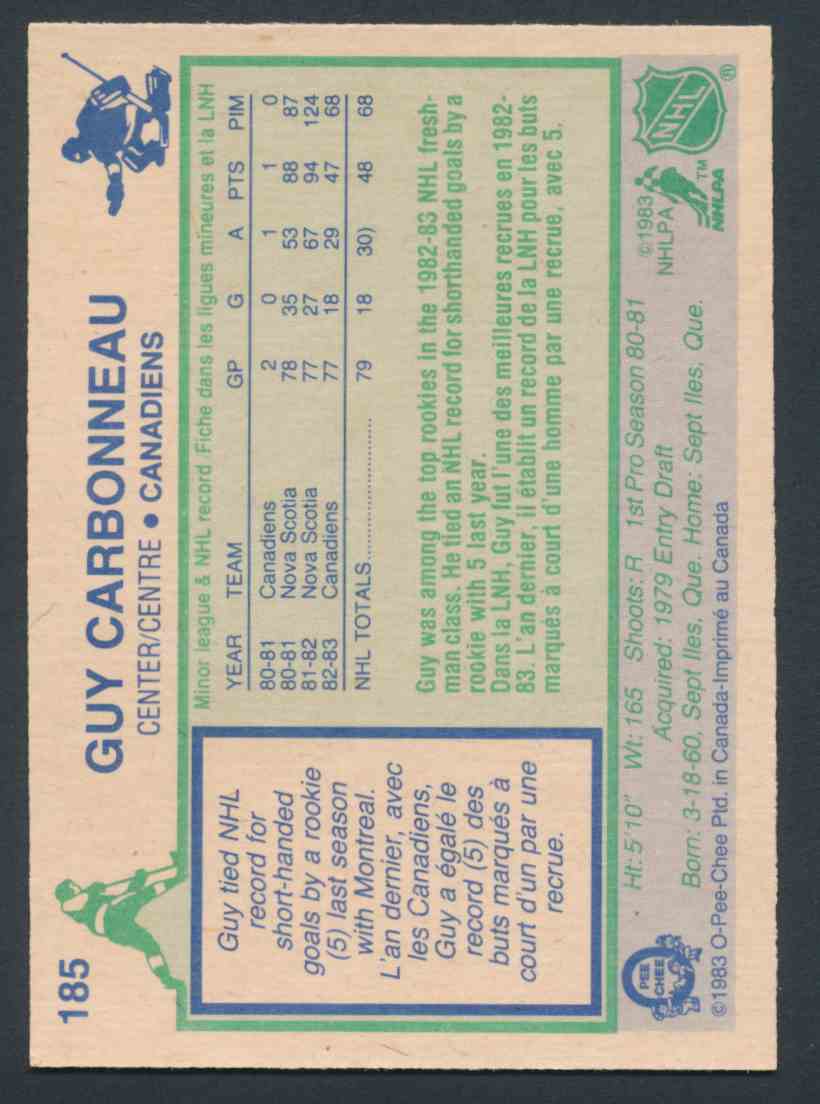 185
GUY CARBONNEAU
CENTER/CENTRE • CANADIENS
Guy tied NHL
record for
short-handed
goals by a rookie
(5) last season
with Montreal.
L'an dernier, avec
les Canadiens,
Guy a égalé le
record (5) des
buts marqués à
court d'un par une
recrue.
Minor league & NHL record Fiche dans les ligues mineures et la LNH
YEAR TEAM GP G A PTS PIM
80-81 Canadiens 2 0 1 1 0
80-81 Nova Scotia 78 35 53 88 87
81-82 Nova Scotia 77 27 67 94 124
82-83 Canadiens 77 18 29 47 68
NHL TOTALS.................... 79 18 30) 48 68
Guy was among the top rookies in the 1982-83 NHL fresh-
man class. He tied an NHL record for shorthanded goals by a
rookie with 5 last year.
Dans la LNH, Guy fut l'une des meilleures recrues en 1982-
83. L'an dernier, il établit un record de la LNH pour les buts
marqués à court d'une homme par une recrue, avec 5.
Ht: 5'10" Wt: 165 Shoots: R 1st Pro Season 80-81
Acquired: 1979 Entry Draft
Born: 3-18-60, Sept Iles, Que. Home: Sept Iles, Que.
©1983 O-Pee-Chee Ptd. in Canada-Imprimé au Canada
PEE
CHEE
©1983
NHLPA
NHLPA
TM
NHL
®